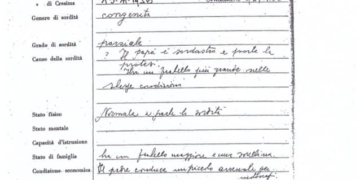 e di Cresima
Genere di sordità congenita
Grado di sordità parziale
Causa della sordità ? Il papà è sordastro e porta la
protesi.
un fratello più grande nelle
stesse condizioni
Stato fisico Normale a parte la sordità
Stato mentale
Capacità d'istruzione
Stato di famiglia ha un fratello maggiore e una sorellina
Condizione economica Il padre conduce un piccolo